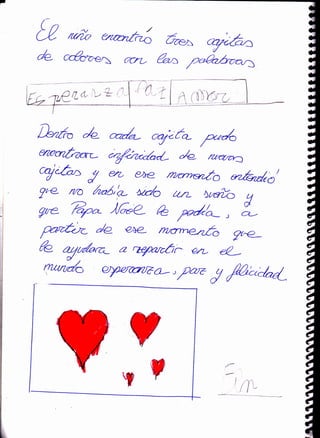 El niño encontró tres cajitas
de colores con las palabras
Esperanza Paz Amor
Dentro de cada cajita pudo
encontrar infinidad de nuevas
cajitas y en ese momento entendió
que no había sido un sueño y
que Papa Noel le pedía, a
partir de ese momento que
le ayudara a repartir en el
mundo esperanza, paz y felicidad.
Fin